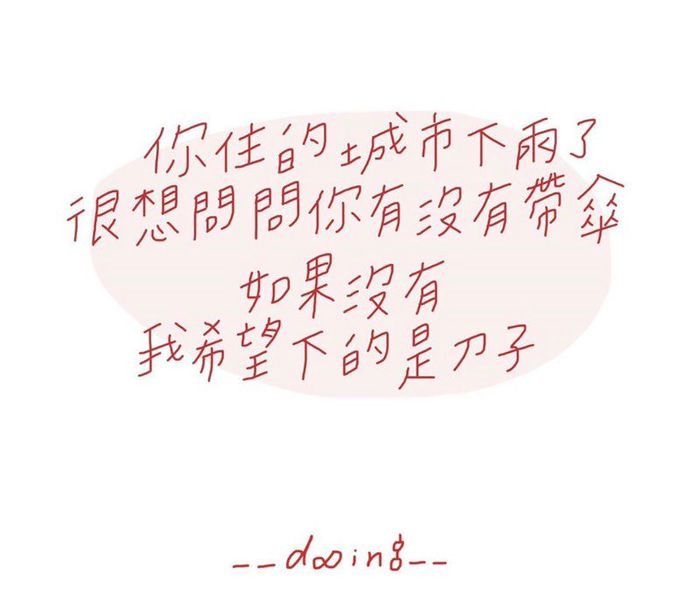 你住的城市下雨了
很想問問你有沒有帶傘
如果沒有
我希望下的是刀子
__dooing__